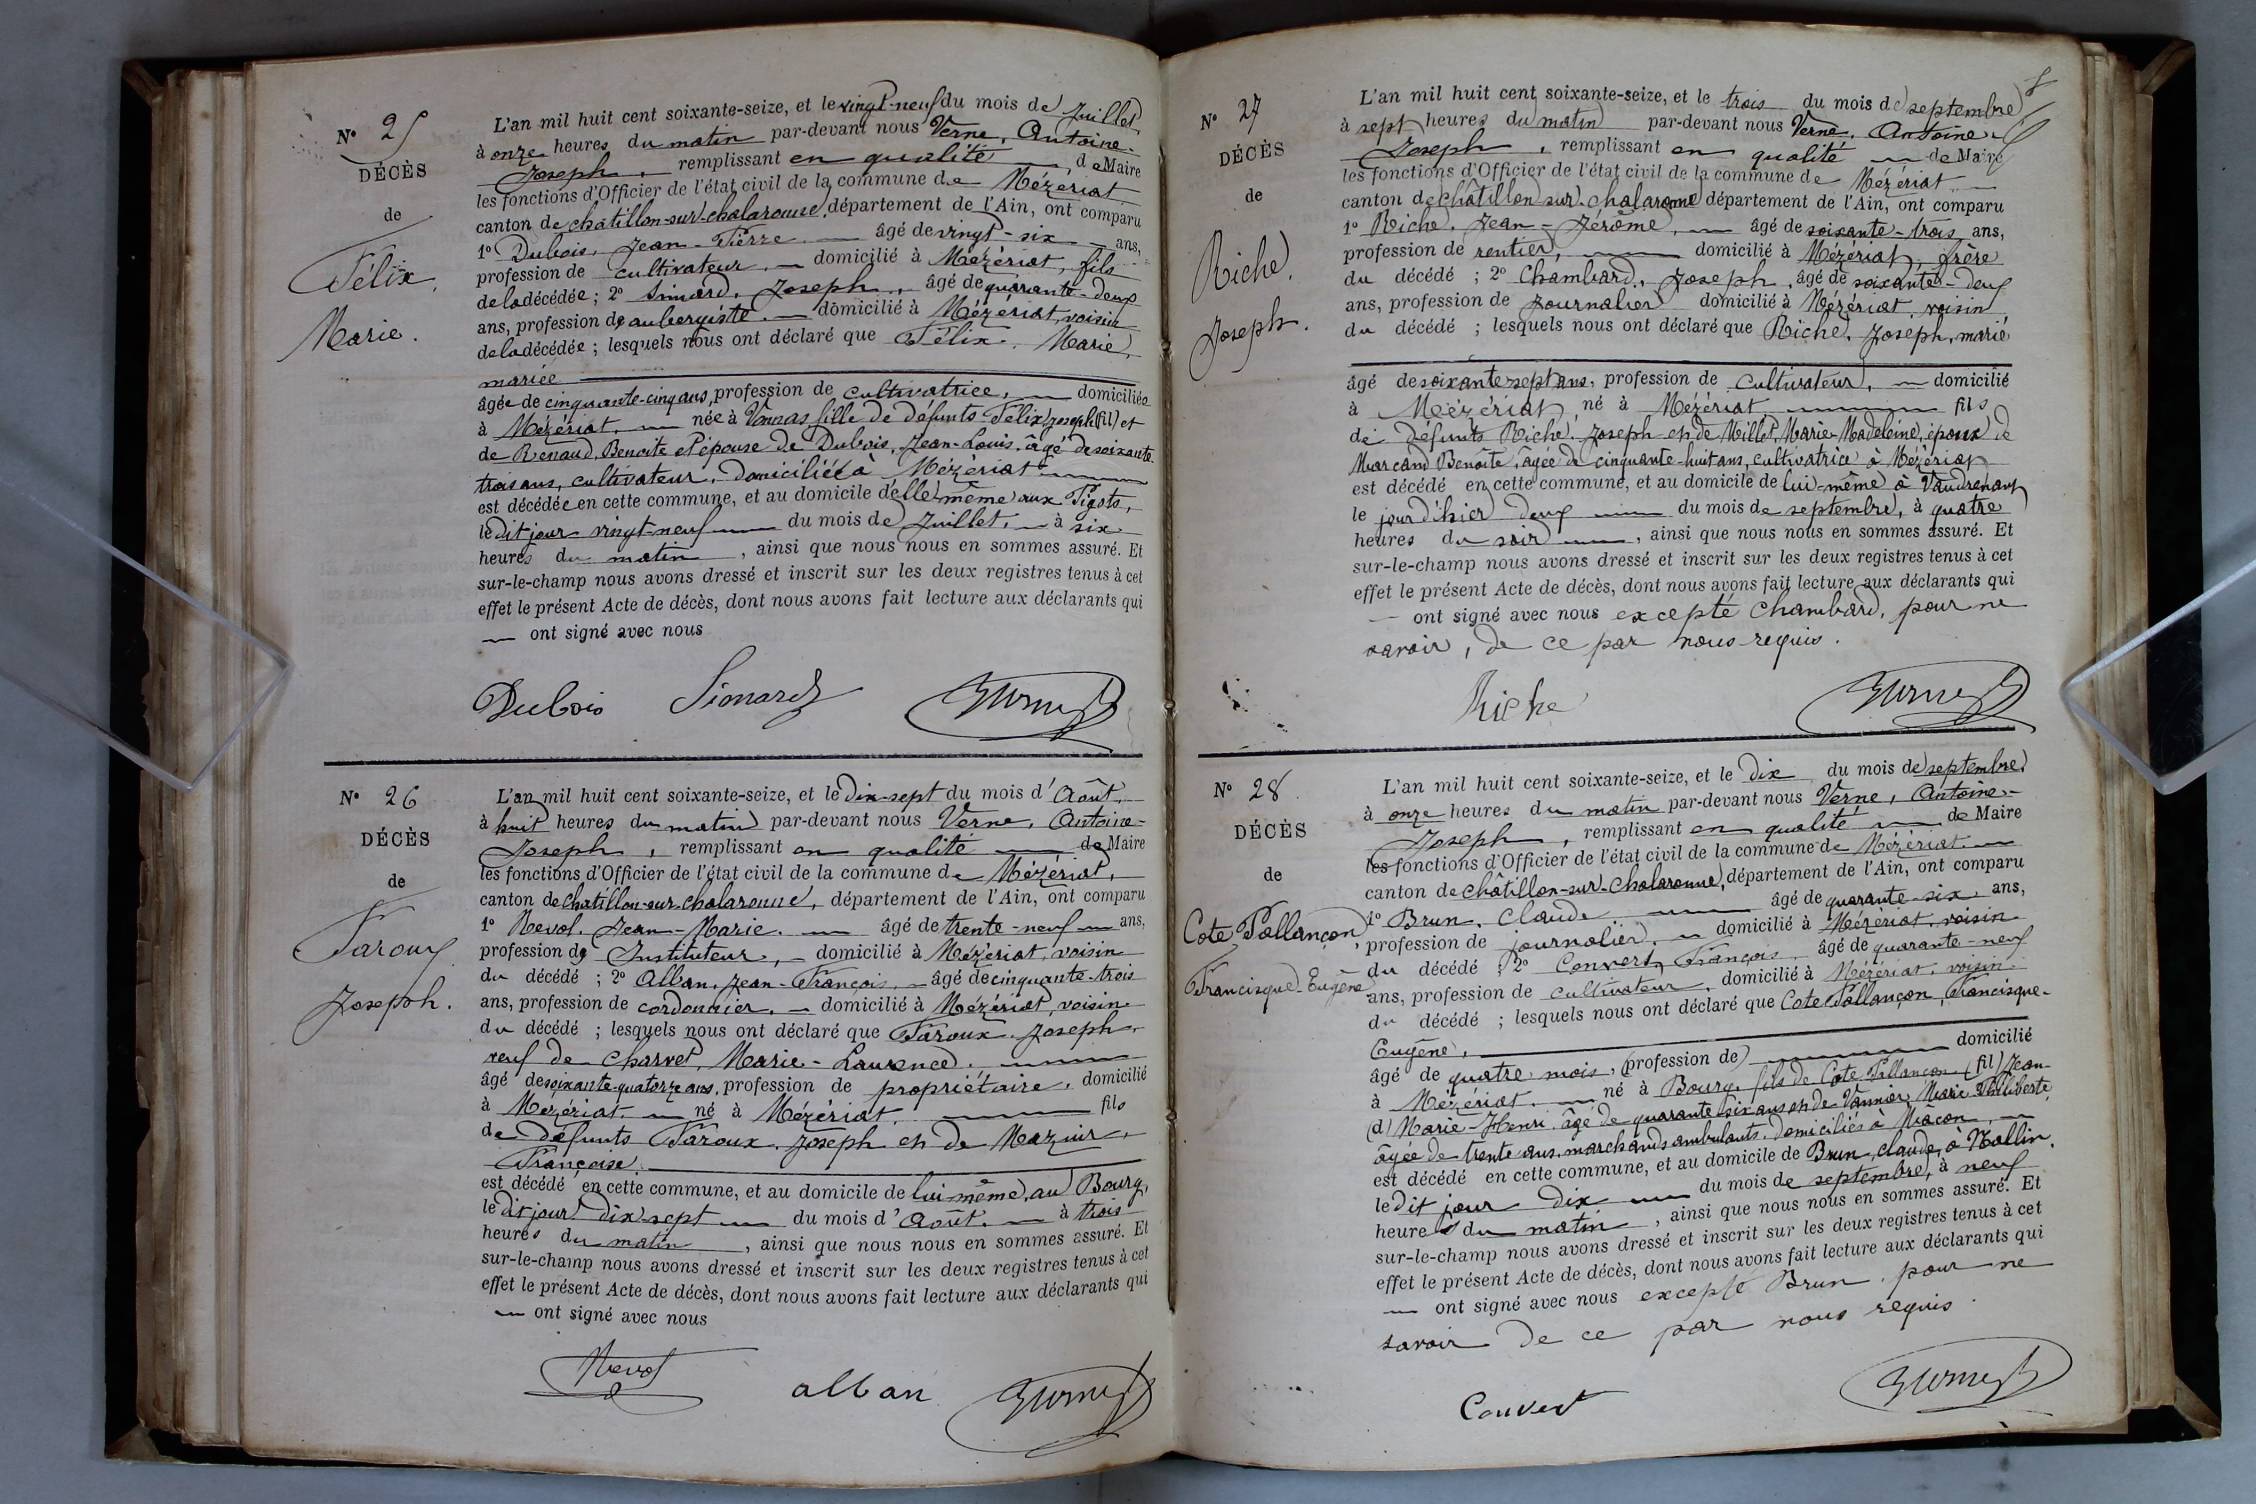 N° 25
DÉCÈS
de
Félix,
Marie.
L'an mil huit cent soixante-seize, et le vingt-neuf du mois de Juillet,
à onze heures du matin par-devant nous Verne, Antoine-
Joseph, remplissant en qualité de Maire
les fonctions d'Officier de l'état civil de la commune de Mézériat,
canton de châtillon-sur-chalaronne, département de l'Ain, ont comparu
1° Dubois, Jean-Pierre — âgé de vingt-six ans,
profession de cultivateur, — domicilié à Mézériat, fils
de la décédée ; 2° Simard, Joseph, âgé de quarante-deux
ans, profession de aubergiste. — domicilié à Mézériat, voisin
de la décédée ; lesquels nous ont déclaré que Félix, Marie,
mariée
âgée de cinquante-cinq ans, profession de cultivatrice, — domiciliée
à Mézériat, — née à Vonnas fille de défunts Félix Joseph (fil) et
de Renaud, Benoite et épouse de Dubois, Jean-Louis, âgé de soixante-
trois ans, cultivateur, domiciliée à Mézériat
est décédée en cette commune, et au domicile d'elle même aux Pigots,
le dit jour vingt-neuf du mois de Juillet, — à six
heures du matin, ainsi que nous nous en sommes assuré. Et
sur-le-champ nous avons dressé et inscrit sur les deux registres tenus à cet
effet le présent Acte de décès, dont nous avons fait lecture aux déclarants qui
— ont signé avec nous
Dubois Simard Verne
N° 26
DÉCÈS
de
Faroux
Joseph.
L'an mil huit cent soixante-seize, et le dix-sept du mois d'Août,
à huit heures du matin par-devant nous Verne, Antoine-
Joseph, remplissant en qualité de Maire
les fonctions d'Officier de l'état civil de la commune de Mézériat,
canton de chatillon-sur-chalaronne, département de l'Ain, ont comparu
1° Nevol, Jean-Marie. — âgé de trente-neuf ans,
profession de Instituteur, — domicilié à Mézériat, voisin
du décédé ; 2° Alban, Jean-François, — âgé de cinquante-trois
ans, profession de cordonnier, — domicilié à Mézériat, voisin
du décédé ; lesquels nous ont déclaré que Faroux Joseph,
veuf de Charvet, Marie-Laurence.
âgé de soixante-quatorze ans, profession de propriétaire, domicilié
à Mézériat. — né à Mézériat, fils
de défunts Faroux, Joseph et de Mazuir,
Françoise.
est décédé en cette commune, et au domicile de lui même, au Bourg,
le dit jour dix-sept — du mois d'Août. — à trois
heures du matin, ainsi que nous nous en sommes assuré. Et
sur-le-champ nous avons dressé et inscrit sur les deux registres tenus à cet
effet le présent Acte de décès, dont nous avons fait lecture aux déclarants qui
— ont signé avec nous
Nevol alban Verne
8
N° 27
DÉCÈS
de
Riche,
Joseph.
L'an mil huit cent soixante-seize, et le trois du mois de septembre
à sept heures du matin par-devant nous Verne, Antoine-
Joseph, remplissant en qualité — de Maire
les fonctions d'Officier de l'état civil de la commune de Mézériat
canton de châtillon sur-chalaronne département de l'Ain, ont comparu
1° Riche, Jean-Jérôme, — âgé de soixante-trois ans,
profession de rentier, domicilié à Mézériat, frère
du décédé ; 2° Chambard, Joseph, âgé de soixante-deux
ans, profession de journalier domicilié à Mézériat, voisin
du décédé ; lesquels nous ont déclaré que Riche, Joseph, marié
âgé de soixante-sept ans, profession de cultivateur, — domicilié
à Mézériat, né à Mézériat fils
de défunts Riche, Joseph et de Millet, Marie-Madeleine, époux de
Marcand Benoîte, âgée de cinquante-huit ans, cultivatrice à Mézériat
est décédé en cette commune, et au domicile de lui-même à Vaudrenant
le jour d'hier deux du mois de septembre, à quatre
heures du soir, ainsi que nous nous en sommes assuré. Et
sur-le-champ nous avons dressé et inscrit sur les deux registres tenus à cet
effet le présent Acte de décès, dont nous avons fait lecture aux déclarants qui
— ont signé avec nous excepté Chambard, pour ne
savoir, de ce par nous requis.
Riche Verne
N° 28
DÉCÈS
de
Cote Pallançon,
Francisque-Eugène
L'an mil huit cent soixante-seize, et le dix du mois de septembre,
à onze heures du matin par-devant nous Verne, Antoine-
Joseph, remplissant en qualité — de Maire
les fonctions d'Officier de l'état civil de la commune de Mézériat.
canton de châtillon-sur-Chalaronne, département de l'Ain, ont comparu
1° Brun, Claude âgé de quarante-six ans,
profession de journalier, — domicilié à Mézériat, voisin
du décédé ; 2° Convert, François, âgé de quarante-neuf
ans, profession de cultivateur, domicilié à Mézériat, voisin
du décédé ; lesquels nous ont déclaré que Cote Pallançon, Francisque-
Eugène,
âgé de quatre mois, (profession de) domicilié
à Mézériat. — né à Bourg, fils de Cote Pallançon (fil) Jean-
(d) Marie-Henri, âgé de quarante six ans et de Vannier, Marie Philiberte,
âgée de trente ans, marchands ambulants, domiciliés à Macon,
est décédé en cette commune, et au domicile de Brun, Claude, à Mallin.
le dit jour dix du mois de septembre, à neuf
heures du matin, ainsi que nous nous en sommes assuré. Et
sur-le-champ nous avons dressé et inscrit sur les deux registres tenus à cet
effet le présent Acte de décès, dont nous avons fait lecture aux déclarants qui
— ont signé avec nous excepté Brun, pour ne
savoir de ce par nous requis.
Convert Verne